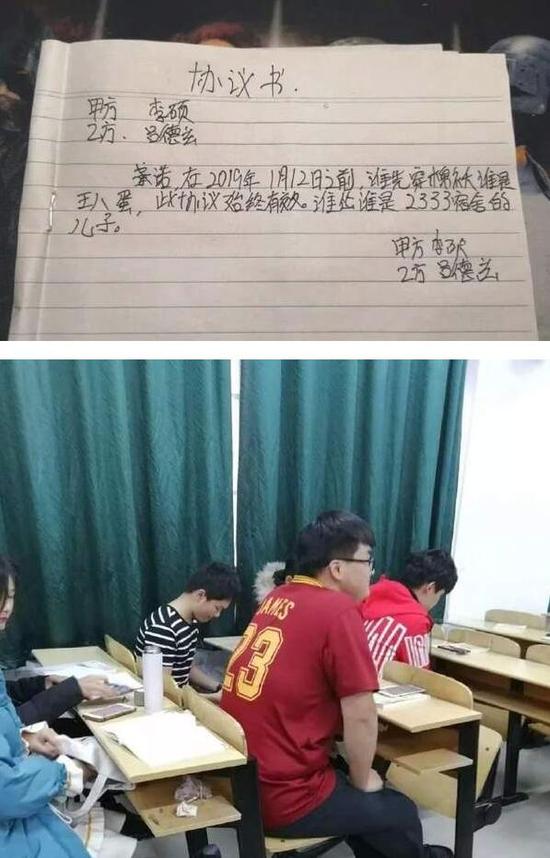 协议书.
甲方 李硕
乙方. 吕德兰
承诺,在2019年1月12日之前,谁先穿棉袄谁是
王八蛋,此协议始终有效。谁 谁是2333宿舍的
儿子。
甲方 李硕
乙方 吕德兰
JAMES
23